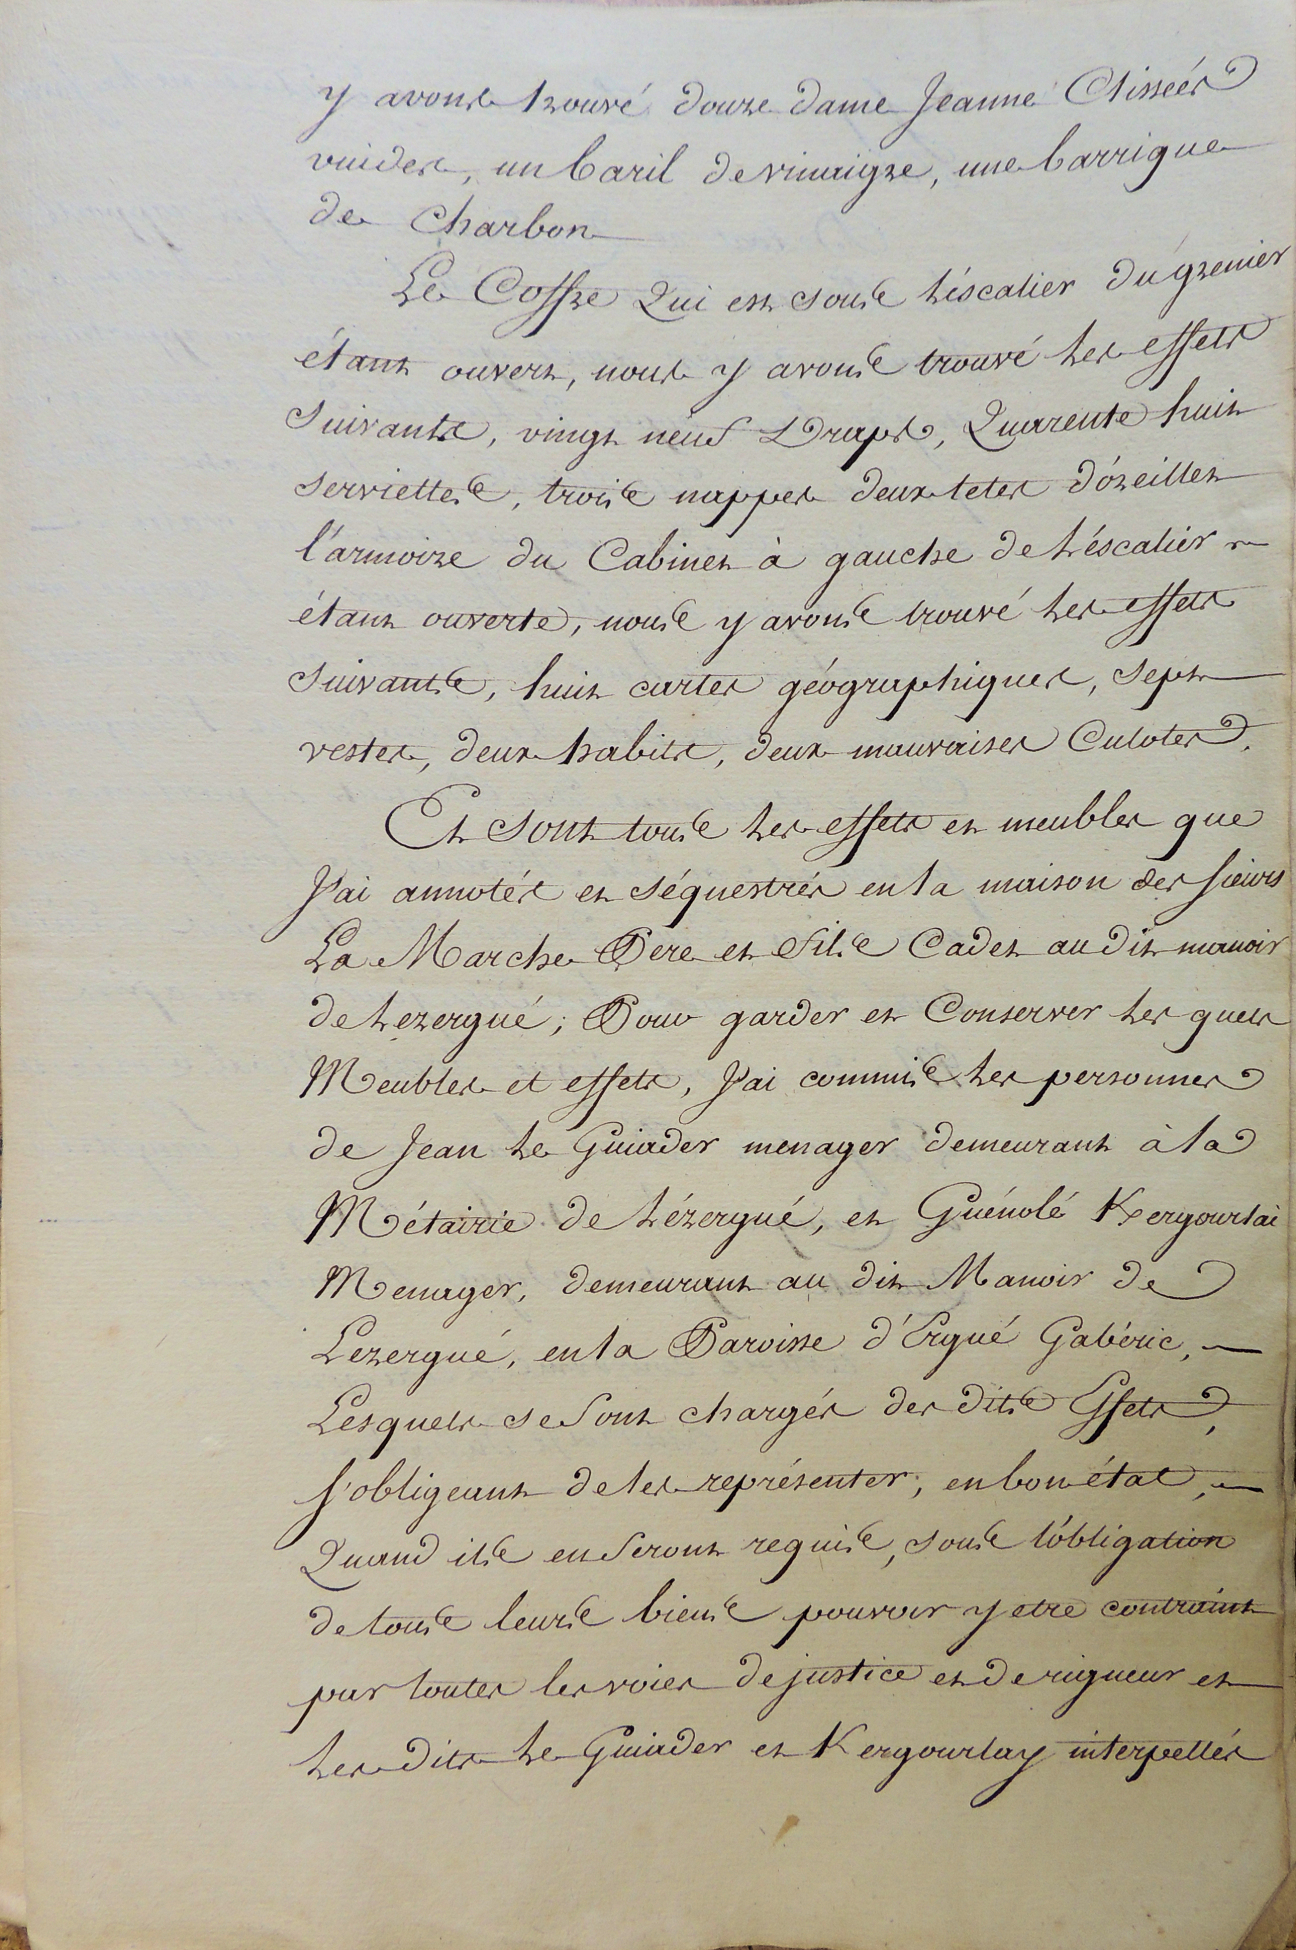 y avons trouvé douze dame Jeanne Clissées
vuides, un baril de vinaigre, une barrique
de Charbon
Le Coffre Qui est sous L'éscalier du grenier
étant ouvert, nous y avons trouvé Les effets
Suivants, vingt neuf Draps, Quarente huit
serviettes, trois nappes deux tetes d'óreillet
l'armoire du Cabinet à gauche de L'éscalier
étant ouverte, nous y avons trouvé Les effets
suivants, huit cartes géographiques, sept
vestes, deux habits, deux mauvaises Culotes.
Et sont tous Les effets et meubles que
J'ai annotés et séquestrés en la maison des sieurs
La Marche Pere et fils Cadet au dit manoir
de Lezergué; Pour garder et Conserver Les quels
Meubles et effets, J'ai commis Les personnes
de Jean Le Guiader menager demeurant à la
Métairie de Lézergué, et Guénolé Kergourlai
Menager, demeurant au dit Manoir de
Lezergué, en la Paroisse d'Ergué Gabéric,
Lesquels se sont chargés des dits Effets,
s'obligeant de les représenter, en bon état,
Quand ils en seront requis, sous l'óbligation
de tous leurs biens pouvoir y etre contraint
par toutes les voies de justice et de rigueur et
Les dits Le Guiader et Kergourlay interpellés